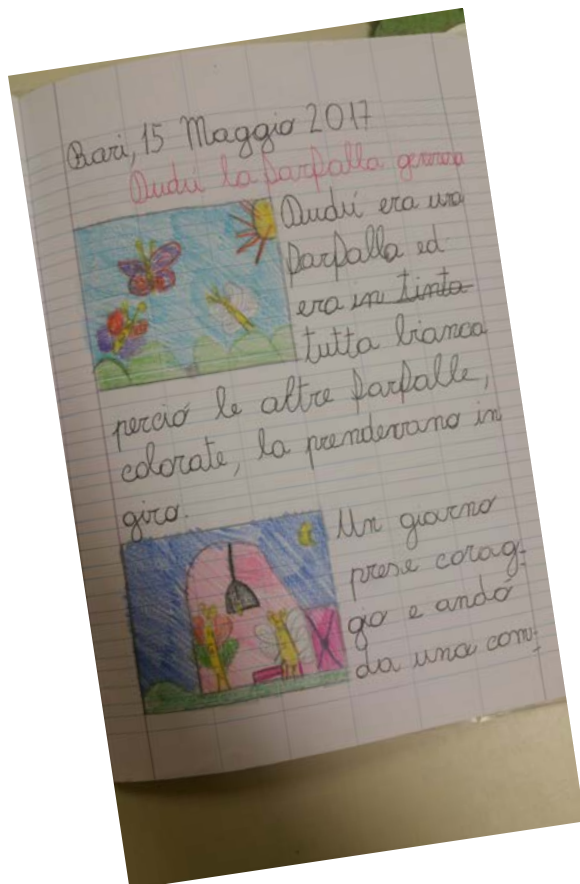 Bari, 15 Maggio 2017
Dudú la farfalla generosa
Dudú era una
farfalla ed
era in tinta
tutta bianca
perció le altre farfalle,
colorate, la prendevano in
giro.
Un giorno
prese corag-
gio e andó
da una com-